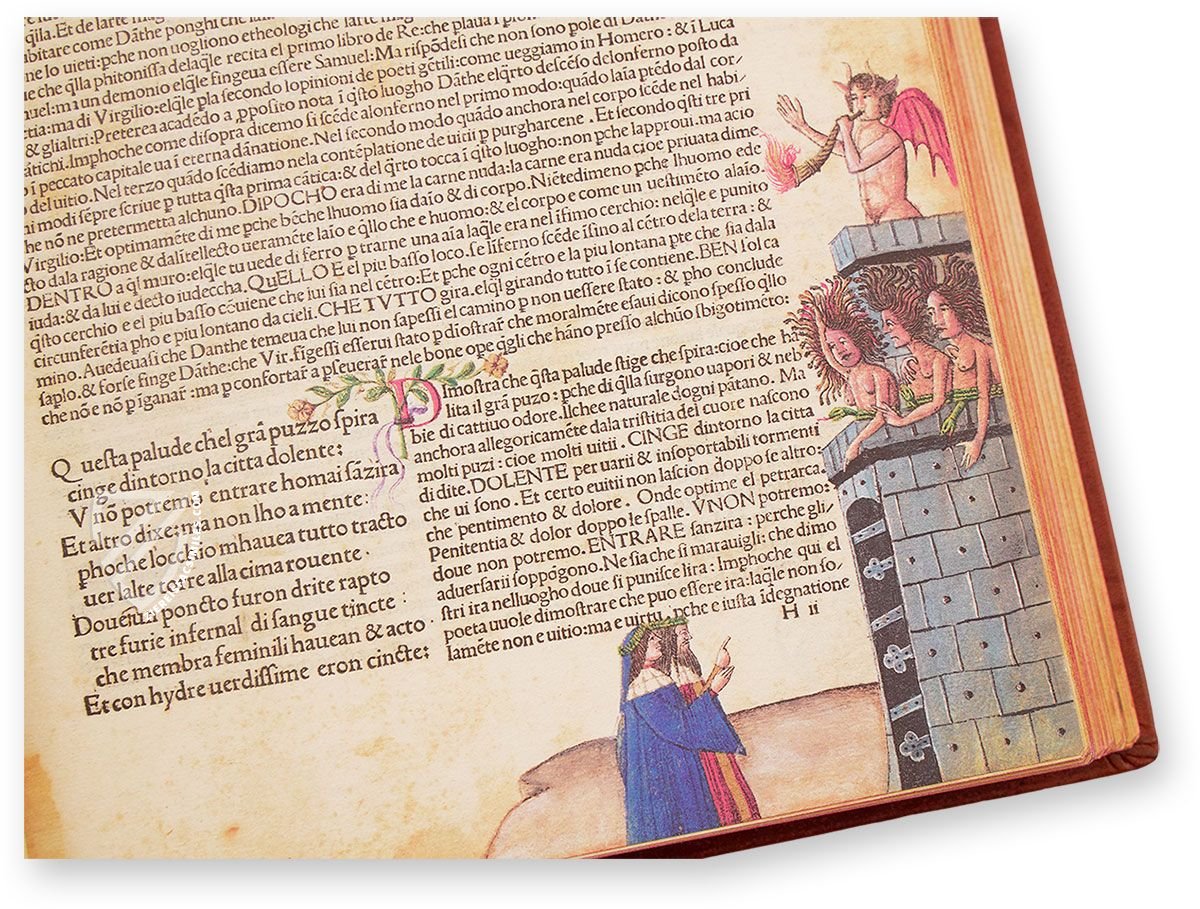 qila. Et de larte mag
bitare come Dãthe ponghi che larte mag
ne lo uieti: pche non uogliono etheologi che larte mag
ue che qlla phitonissa delaqle recita el primo libro de Re: che
nuel: ma un demonio elqle fingeua essere Samuel: Ma rispõdesi che non sono pole di Dãthe
etia: ma di Virgilio: elqle pla secondo lopinioni de poeti gẽtili: come ueggiamo in Homero: & ĩ Luca
& glialtri: Preterea acadédo a pposito nota ĩ qsto luogho Dãthe elqrto descéso delonferno posto da
ãticini. Imphoche come disopra dicemo si scéde alonferno nel primo modo: quãdo laĩa ptédo dal cor/
o ĩ peccato capitale ua ĩ eterna dãnatione. Nel secondo modo quãdo anchora nel corpo scéde nel habi/
o del uitio. Nel terzo quãdo scédiamo nela contéplatione de uitii p purgharcene. Et secondo qsti tre pri
ni modi sépre scriue p tutta qsta prima cãtica: & del qrto tocca ĩ qsto luogho: non pche lapproui. ma acio
he nõ ne pretermetta alchuno. DIPOCHO era di me la carne nuda: la carne era nuda cioe priuata dime
Virgilio: Et optimaméte di me pche béche lhuomo sia daĩo & di corpo. Niétedimeno pche lhuomo ede
cto dala ragione & dalĩtellecto ueraméte laĩo e qllo che e huomo: & el corpo e come un uestiméto alaĩo.
DENTRO a ql muro: elqle tu uede di ferro p trarne una aĩa laqle era nel ĩfimo cerchio: nelqle e punito
iuda: & da lui e decto iudeccha. QVELLO E el piu basso loco. se lĩferno scéde ĩsino al cétro dela terra: &
qsto cerchio e el piu basso cõuiene che lui sia nel cétro: Et pche ogni cétro e la piu lontana pte che sia dala
circunferétia pho e piu lontano da cieli. CHE TVTTO gira. elql girando tutto ĩ se contiene. BEN so: lo ca
mino. Auedeuasi che Danthe temeua che lui non sapessi el camino p non uessere stato: & pho conclude
saplo. & forse finge Dãthe: che Vir. figessi esserui stato p dĩostrar che moralméte esaui dicono spesso qllo
che nõ e nõ p ĩganar: ma p confortar a pseuerar nele bone ope qgli che hãno presso alchũo sbigotiméto:
Questa palude chel grã puzzo spira
cinge dintorno la citta dolente:
V nõ potremo entrare homai sãzira
Et altro dixe: ma non lho a mente:
phoche locchio mhauea tutto tracto
uer lalte torre alla cima rouente.
Doue in un poncto furon drite rapto
tre furie infernal di sangue tincte:
che membra feminili hauean & acto.
Et con hydre uerdissime eron cincte:
Dimostra che qsta palude stige che spira: cioe che ha
lita il grã puzo: pche di qlla surgono uapori & neb
bie di cattiuo odore. Ilchee naturale dogni pãtano. Ma
anchora allegoricaméte dala tristitia del cuore nascono
molti puzi: cioe molti uitii. CINGE dintorno la citta
di dite. DOLENTE per uarii & insoportabili tormenti
che ui sono. Et certo euitii non lascion doppo se altro
che pentimento & dolore. Onde optime el petrarca.
Penitentia & dolor doppo le spalle. VNON potremo:
doue non potremo. ENTRARE sanzira: perche gli/
aduersarii soppõgono. Ne sia che si marauigli: che dimo
stri ira nelluogho doue si punisce lira: Imphoche qui el
poeta uuole dimostrare che puo essere ira: laqle non so/
laméte non e uitio: ma e uirtu. pche e iusta ĩdegnatione
H ii